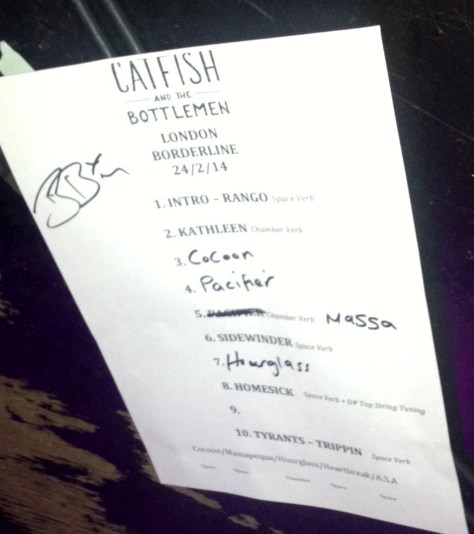 CATFISH
AND THE
BOTTLEMEN
LONDON
BORDERLINE
24/2/14
1. INTRO - RANGO Space Verb
2. KATHLEEN Chamber Verb
3. Cocoon
4. Pacifier
5. Chamber Verb Massa
6. SIDEWINDER Space Verb
7. Hourglass
8. HOMESICK Space Verb + D# Top String Tuning
9.
10. TYRANTS - TRIPPIN Space Verb
Cocoon/Massapequa/Hourglass/Heartbreak/A.S.A
Space Space Chamber Space Space